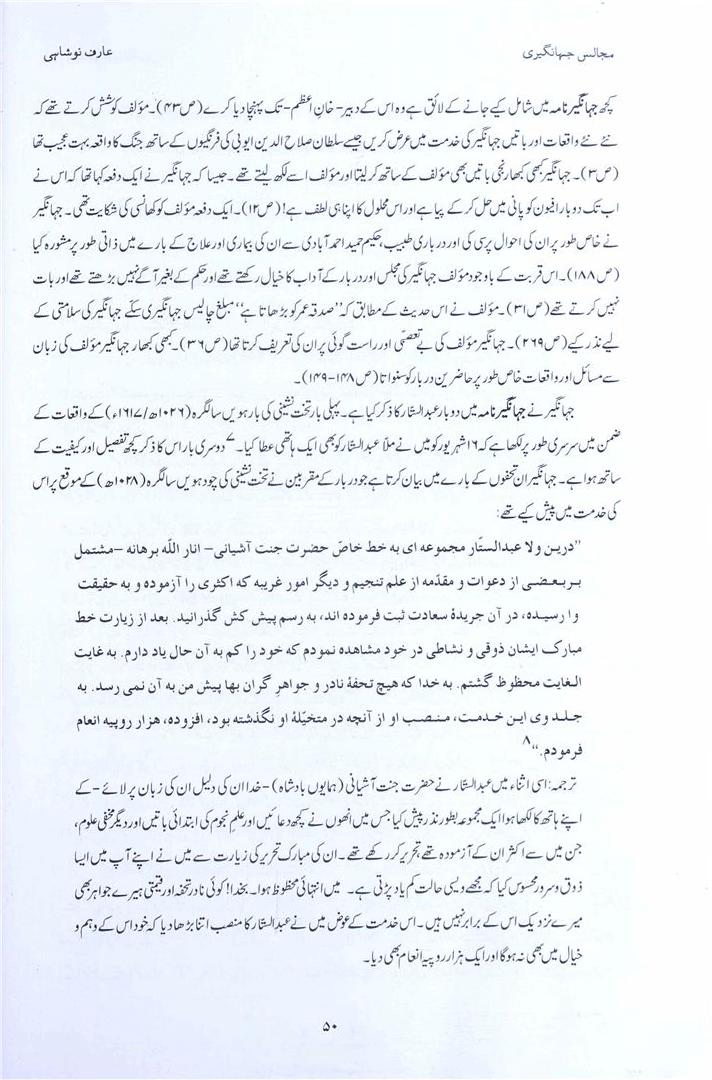 مجالس جہانگیری
عارف نوشاہی
کچھ جہانگیر نامہ میں شامل کیے جانے کے لائق ہے وہ اس کے دبیر - خانِ اعظم - تک پہنچا دیا کرے (ص۴۳)۔ مؤلف کوشش کرتے تھے کہ
نئے نئے واقعات اور باتیں جہانگیر کی خدمت میں عرض کریں جیسے سلطان صلاح الدین ایوبی کی فرنگیوں کے ساتھ جنگ کا واقعہ بہت عجیب تھا
(ص۳)۔ جہانگیر کبھی کبھار نجی باتیں بھی مؤلف کے ساتھ کر لیتا اور مؤلف اسے لکھ لیتے تھے۔ جیسا کہ جہانگیر نے ایک دفعہ کہا تھا کہ اس نے
اب تک دو بار افیون کو پانی میں حل کر کے پیا ہے اور اس محلول کا اپنا ہی لطف ہے! (ص۱۲)۔ ایک دفعہ مؤلف کو کھانسی کی شکایت تھی۔ جہانگیر
نے خاص طور پر ان کی احوال پرسی کی اور درباری طبیب، حکیم حمید احمد آبادی سے ان کی بیماری اور علاج کے بارے میں ذاتی طور پر مشورہ کیا
(ص۱۸۸)۔ اس قربت کے باوجود مؤلف جہانگیر کی مجلس اور دربار کے آداب کا خیال رکھتے تھے اور حکم کے بغیر آگے نہیں بڑھتے تھے اور بات
نہیں کرتے تھے (ص۳۱)۔ مؤلف نے اس حدیث کے مطابق کہ ”صدقہ عمر کو بڑھاتا ہے“ مبلغ چالیس جہانگیری سکّے جہانگیر کی سلامتی کے
لیے نذر کیے (ص۲۶۹)۔ جہانگیر مؤلف کی بے تعصّبی اور راست گوئی پر ان کی تعریف کرتا تھا (ص۳۶)۔ کبھی کبھار جہانگیر مؤلف کی زبان
سے مسائل اور واقعات خاص طور پر حاضرین دربار کو سنواتا (ص۱۴۸-۱۴۹)۔
جہانگیر نے جہانگیر نامہ میں دو بار عبدالستّار کا ذکر کیا ہے۔ پہلی بار تخت نشینی کی بارہویں سالگرہ (۱۰۲۶ھ/۱۶۱۷ء) کے واقعات کے
ضمن میں سرسری طور پر لکھا ہے کہ ۱۶ شہریور کو میں نے ملّا عبدالستّار کو بھی ایک ہاتھی عطا کیا۔۷ دوسری بار اس کا ذکر کچھ تفصیل اور کیفیت کے
ساتھ ہوا ہے۔ جہانگیر ان تحفوں کے بارے میں بیان کرتا ہے جو دربار کے مقربین نے تخت نشینی کی چودہویں سالگرہ (۱۰۲۸ھ) کے موقع پر اس
کی خدمت میں پیش کیے تھے:
”درین ولا عبدالستّار مجموعه ای به خط خاصّ حضرت جنت آشیانی - انار اللّه برهانه - مشتمل
بر بعضی از دعوات و مقدّمه از علم تنجیم و دیگر امور غریبه که اکثری را آزموده و به حقیقت
وا رسیده، در آن جریدهٔ سعادت ثبت فرموده اند، به رسم پیش کش گذرانید. بعد از زیارت خط
مبارک ایشان ذوقی و نشاطی در خود مشاهده نمودم که خود را کم به آن حال یاد دارم. به غایت
الغایت محظوظ گشتم. به خدا که هیچ تحفهٔ نادر و جواهرِ گران بها پیش من به آن نمی رسد. به
جلدوی این خدمت، منصب او از آنچه در متخیّلهٔ او نگذشته بود، افزوده، هزار روپیه انعام
فرمودم.“۸
ترجمہ: اسی اثناء میں عبدالستّار نے حضرت جنت آشیانی (ہمایوں بادشاہ) - خدا ان کی دلیل ان کی زبان پر لائے - کے
اپنے ہاتھ کا لکھا ہوا ایک مجموعہ بطور نذر پیش کیا جس میں انھوں نے کچھ دعائیں اور علمِ نجوم کی ابتدائی باتیں اور دیگر مخفی علوم،
جن میں سے اکثر ان کے آزمودہ تھے، تحریر کر رکھے تھے۔ ان کی مبارک تحریر کی زیارت سے میں نے اپنے آپ میں ایسا
ذوق و سرور محسوس کیا کہ مجھے ویسی حالت کم یاد پڑتی ہے۔ میں انتہائی محظوظ ہوا۔ بخدا! کوئی نادر تحفہ اور قیمتی ہیرے جواہر بھی
میرے نزدیک اس کے برابر نہیں ہیں۔ اس خدمت کے عوض میں نے عبدالستّار کا منصب اتنا بڑھا دیا کہ خود اس کے وہم و
خیال میں بھی نہ ہوگا اور ایک ہزار روپیہ انعام بھی دیا۔
۵۰